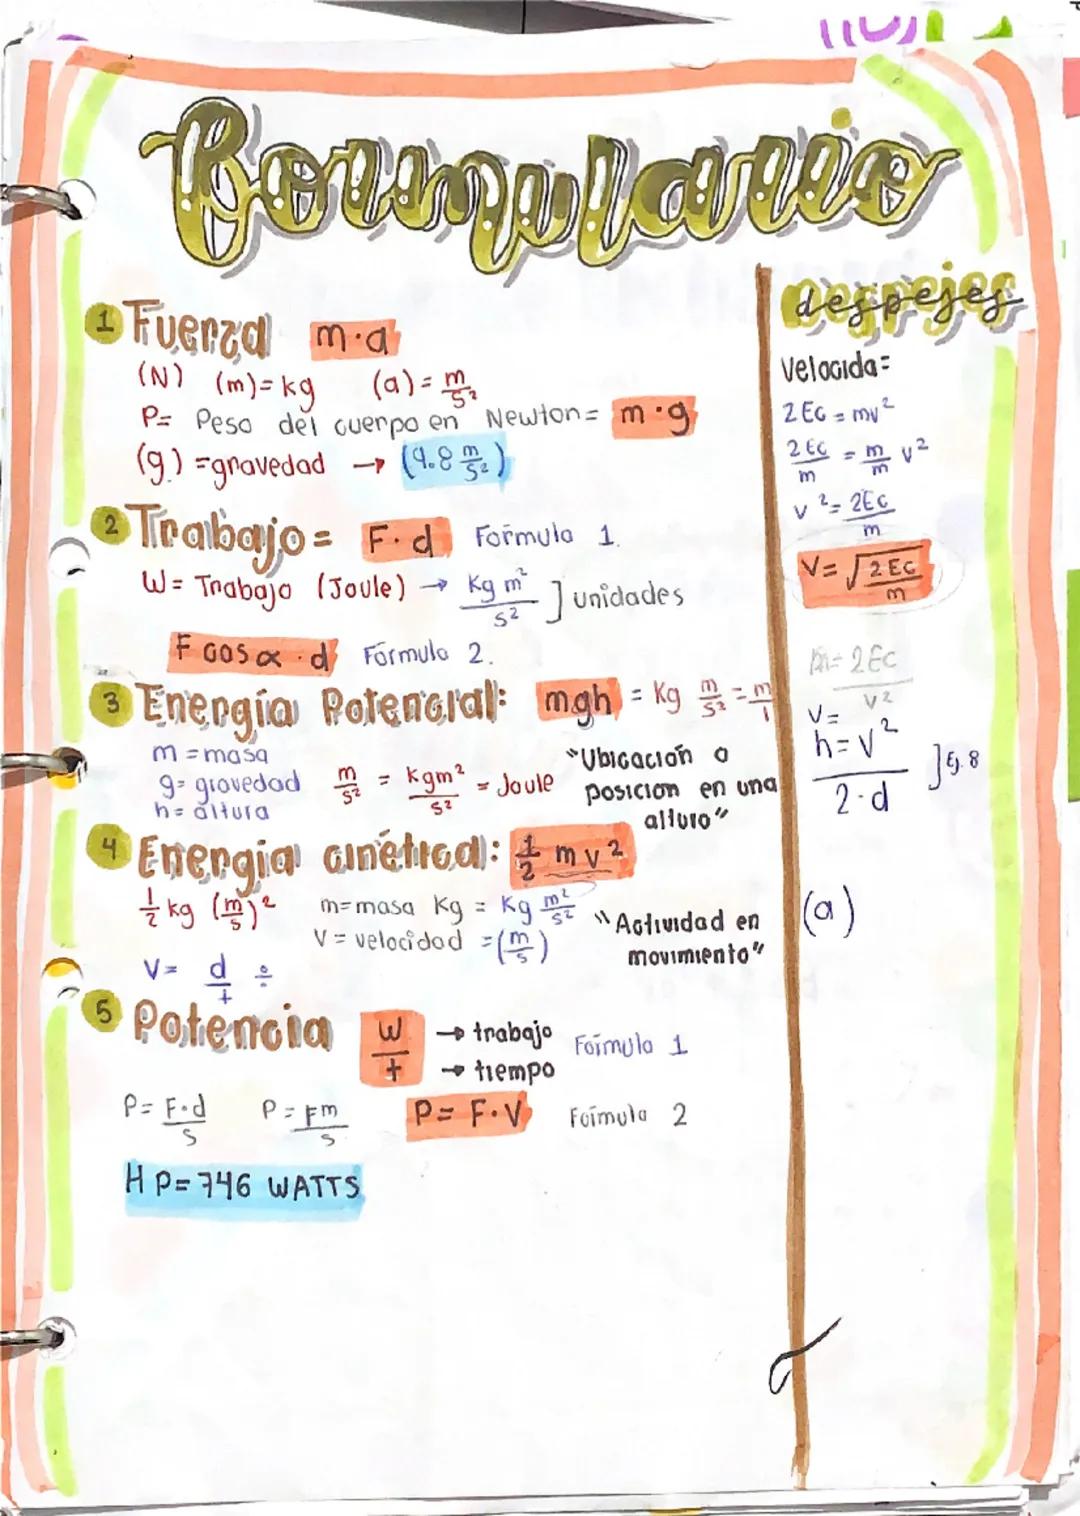 Formulario
1 Fuerza m·a
(N) (m)=kg (a)= m/s²
P= Peso del cuerpo en Newton= m·g
(g) =gravedad → (9.8 m/s²)
2 Trabajo= F·d Formula 1.
W= Trabajo (Joule) → Kg m²/s² ] unidades
F cos α · d Formula 2.
3 Energía Potencial: mgh = Kg m/s² = m/1
m =masa
g= gravedad
h= altura
m/s² = Kgm²/s² = Joule
"Ubicación o
posicion en una
altura"
4 Energia cinética: 1/2 mv²
1/2 kg (m/s)² m=masa Kg = Kg m²/s²
V= velocidad =(m/s)
"Actividad en
movimiento"
V= d/t ÷
5 Potencia W/t → trabajo
→ tiempo
Formula 1
P= F·d/s P= Fm/s P= F·V Formula 2
HP=746 WATTS
despejes
Velocida=
2Ec = mv²
2Ec/m = m/m v²
v²= 2Ec/m
V= √2Ec/m
m= 2Ec/v²
V=
h= v²/2·d ] Ej. 8
(a)